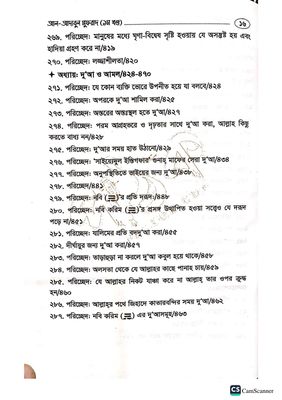 আল-আদাবুল মুফরাদ (১ম খণ্ড)
১৬
২৬৯. পরিচ্ছেদ: মানুষের মধ্যে ঘৃণা-বিদ্বেষ সৃষ্টি হওয়ায় যে অসন্তুষ্ট হয় এবং
হাদিয়া গ্রহণ করে না/৪১৯
২৭০. পরিচ্ছেদ: লজ্জাশীলতা/৪২০
অধ্যায়: দু'আ ও আমল/৪২৪-৪৭০
২৭১. পরিচ্ছেদ: যে কোন ব্যক্তি ভোরে উপনীত হয়ে যা বলবে/৪২৪
২৭২. পরিচ্ছেদ: অপরকে দু'আ শামিল করা/৪২৫
২৭৩. পরিচ্ছেদ: অন্তরের অন্তঃস্থল হতে দু'আ/৪২৭
২৭৪. পরিচ্ছেদ: পরম আগ্রহভরে ও দৃঢ়তার সাথে দু'আ করা, আল্লাহ্ কিছু
করতে বাধ্য নন/৪২৮
২৭৫. পরিচ্ছেদ: দু'আর সময় হাত উঠানো/৪২৯
২৭৬. পরিচ্ছেদ: 'সাইয়্যেদুল ইস্তিগফার' গুনাহ্ মাফের সেরা দু'আ/৪৩৪
২৭৭. পরিচ্ছেদ: অনুপস্থিতিতে ভাইয়ের জন্য দু'আ/৪৩৮
২৭৮. পরিচ্ছেদ:/৪৪১
২৭৯. পরিচ্ছেদ: নবি (ﷺ)'র প্রতি দরূদ/৪৪৮
২৮০. পরিচ্ছেদ: নবি করিম (ﷺ)'র প্রসঙ্গ উত্থাপিত হওয়া সত্ত্বেও যে দরূদ
পড়ে না/৪৫১
২৮১. পরিচ্ছেদ: যালিমের প্রতি বদদু'আ করা/৪৫৫
২৮২. দীর্ঘায়ুর জন্য দু'আ করা/৪৫৭
২৮৩. পরিচ্ছেদ: তাড়াহুড়া না করলে দু'আ কবুল হয়ে থাকে/৪৫৮
২৮৪. পরিচ্ছেদ: অলসতা থেকে যে আল্লাহর কাছে পানাহ চায়/৪৫৯
২৮৫. পরিচ্ছেদ: যে আল্লাহর নিকট যাঞ্চা করে না আল্লাহ্ তার ওপর ক্রুদ্ধ
হন/৪৬০
২৮৬. পরিচ্ছেদ: আল্লাহর পথে জিহাদে কাতারবন্দির সময় দু'আ/৪৬২
২৮৭. পরিচ্ছেদ: নবি করিম (ﷺ) এর দু'আসমূহ/৪৬৩
CS CamScanner